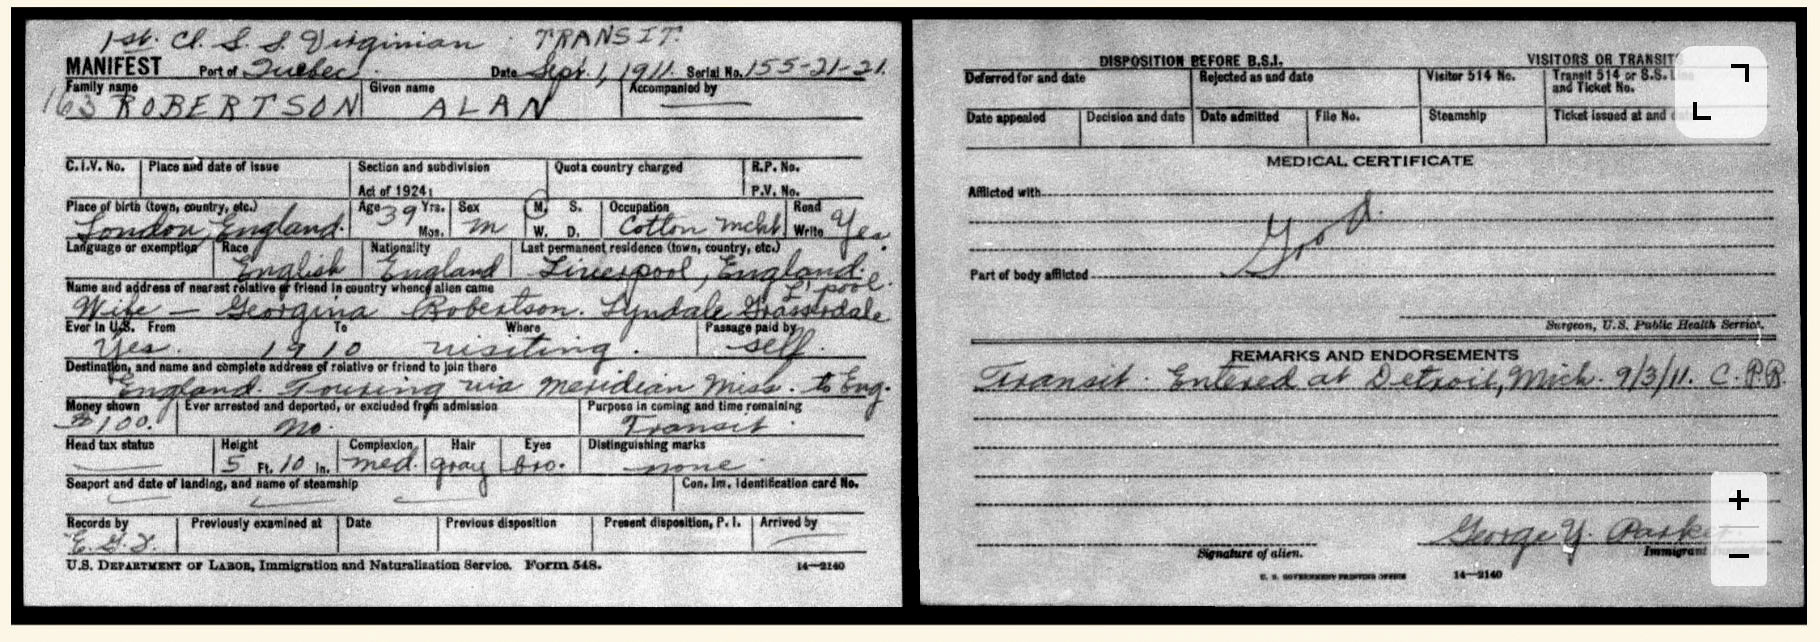 1st. Cl. S. S. Virginian TRANSIT.
MANIFEST Port of Quebec. Date Sept. 1, 1911. Serial No. 155-21-21.
Family name Given name Accompanied by
163 ROBERTSON ALAN
C.I.V. No. Place and date of issue Section and subdivision Quota country charged R.P. No.
Act of 1924: P.V. No.
Place of birth (town, country, etc.) Age 39 Yrs. Sex M. S. Occupation Read
London, England. Mos. M W. D. Cotton mcht. Write Yes.
Language or exemption Race Nationality Last permanent residence (town, country, etc.)
English England Liverpool, England.
Name and address of nearest relative or friend in country whence alien came L'pool.
Wife — Georgina Robertson. Lyndale Grassendale
Ever in U.S. From To Where Passage paid by
Yes. 1910 visiting. self.
Destination, and name and complete address of relative or friend to join there
England. Touring via Meridian Miss. to Eng.
Money shown Ever arrested and deported, or excluded from admission Purpose in coming and time remaining
$100. No. Transit.
Head tax status Height Complexion Hair Eyes Distinguishing marks
5 Ft. 10 In. med. gray bro. none.
Seaport and date of landing, and name of steamship Con. Im. Identification card No.
Records by Previously examined at Date Previous disposition Present disposition, P. I. Arrived by
U.S. DEPARTMENT OF LABOR, Immigration and Naturalization Service. Form 548. 14—2140
DISPOSITION BEFORE B.S.I. VISITORS OR TRANSITS
Deferred for and date Rejected as and date Visitor 514 No. Transit 514 or S.S. Line
and Ticket No.
Date appealed Decision and date Date admitted File No. Steamship Ticket issued at and
MEDICAL CERTIFICATE
Afflicted with
Good.
Part of body afflicted
Surgeon, U.S. Public Health Service.
REMARKS AND ENDORSEMENTS
Transit. Entered at Detroit, Mich. 9/3/11. C.P.R.
George Y. Parker
Signature of alien. Immigrant
U. S. GOVERNMENT PRINTING OFFICE 14—2140